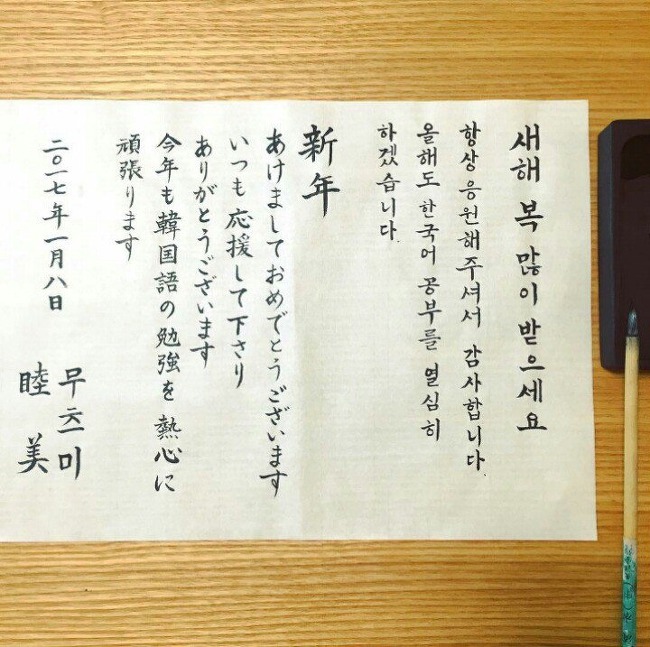 새해 복 많이 받으세요
항상 응원해주셔서 감사합니다.
올해도 한국어 공부를 열심히
하겠습니다.
新年
あけましておめでとうございます
いつも応援して下さり
ありがとうございます
今年も韓国語の勉強を熱心に
頑張ります
二〇一七年一月八日
무츠미
睦美